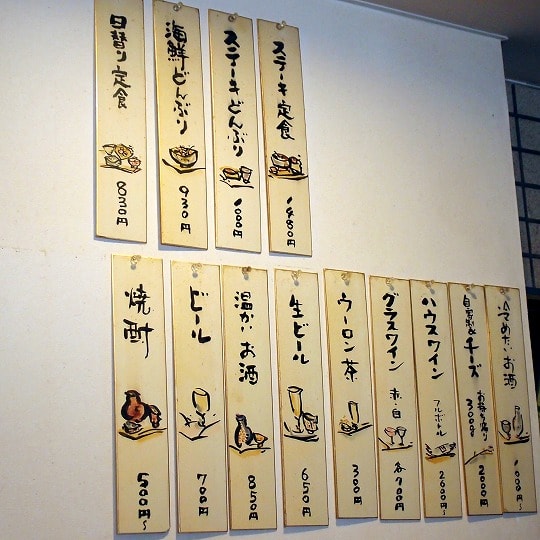 ステーキ定食
1480円
ステーキどんぶり
1000円
海鮮どんぶり
930円
日替り定食
830円
冷めたいお酒
1000円~
自家製チーズ
お持ち帰り
3000円
2000円
ハウスワイン
フルボトル
2600円~
グラスワイン
赤・白
各700円
ウーロン茶
300円
生ビール
650円
温かいお酒
850円
ビール
700円
焼酎
500円~